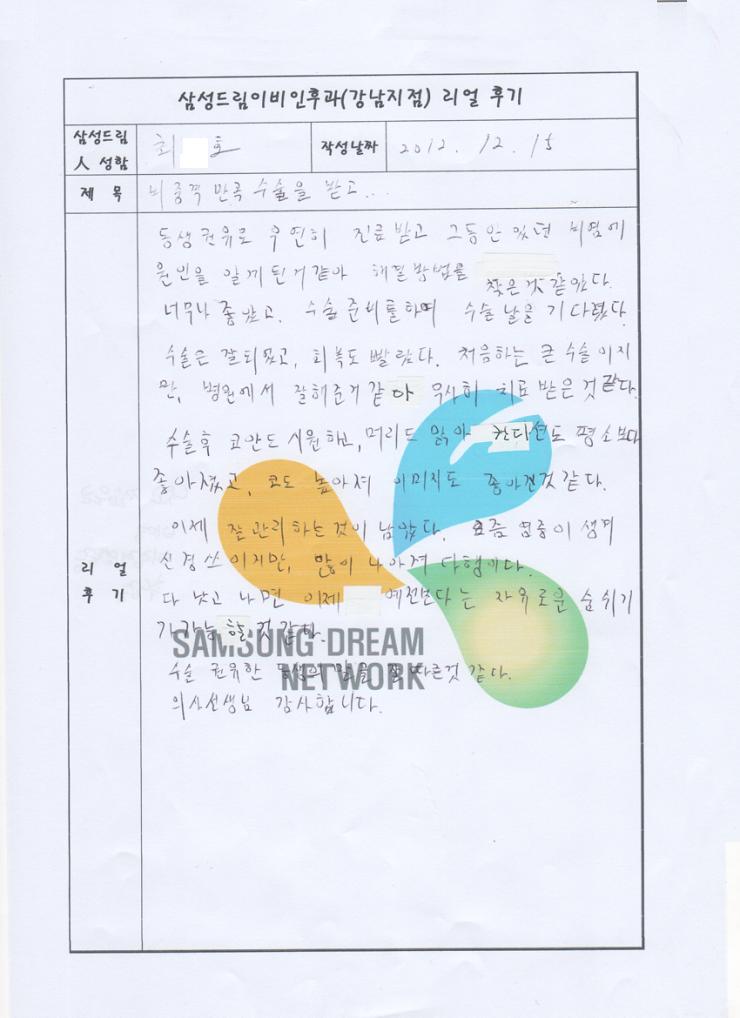 삼성드림이비인후과(강남지점) 리얼 후기
삼성드림 人 성함 최 호 작성날짜 2012. 12. 15
제 목 비중격 만곡 수술을 받고...
동생권유로 우연히 진료받고 그동안 있던 비염에
원인을 알게된거같아 해결방법을 찾은것 같았다.
너무나 좋았고. 수술준비를하며 수술날을 기다렸다.
수술은 잘되었고, 회복도 빨랐다. 처음하는 큰 수술이지
만, 병원에서 잘해준거 같다 무사히 치료 받은것 같다.
수술후 코안도 시원하고, 머리도 맑아 컨디션도 평소보다
좋아졌고, 코도 높아져 이미지도 좋아진것 같다.
이제 잘관리하는 것이 남았다. 요즘 염증이 생겨
신경쓰이지만, 많이 나아져 다행이다.
리 얼 후 기
다 낫고 나면 이제 예전보다는 자유로운 숨쉬기
가 가능 할것 같다.
SAMSUNG DREAM
수술 권유한 동생의 말을 잘 따른것 같다.
NETWORK
의사선생님 감사합니다.